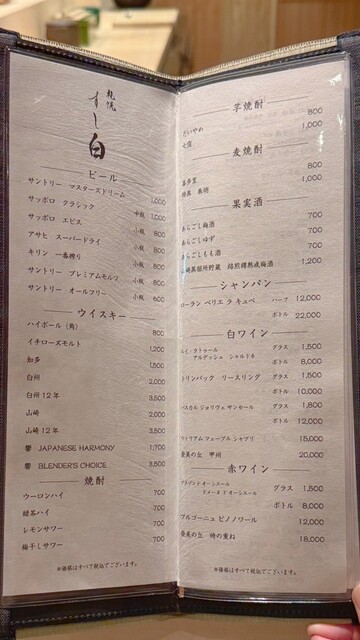 札幌
すし白
ビール
サントリー マスターズドリーム 1,000
サッポロ クラシック 中瓶 1,000
サッポロ ヱビス 小瓶 800
アサヒ スーパードライ 小瓶 800
キリン 一番搾り 小瓶 800
サントリー プレミアムモルツ 小瓶 800
サントリー オールフリー 小瓶 600
ウイスキー
ハイボール(角) 800
イチローズモルト 1,200
知多 1,500
白州 2,000
白州12年 3,500
山崎 2,000
山崎12年 3,500
響 JAPANESE HARMONY 1,700
響 BLENDER'S CHOICE 3,500
焼酎
ウーロンハイ 700
緑茶ハイ 700
レモンサワー 700
梅干しサワー 700
※価格はすべて税込でございます。
芋焼酎
だいやめ 800
七窪 1,000
麦焼酎
喜多里 800
特蒸 1,000
果実酒
あらごし梅酒 700
あらごしゆず 700
あらごしもも酒 700
山崎蒸留所貯蔵 焙煎樽熟成梅酒 1,200
シャンパン
ローラン ペリエ ラ キュベ ハーフ 12,000
ボトル 22,000
白ワイン
ルイ・ラトゥール
アルディッシュ シャルドネ グラス 1,500
ボトル 8,000
トリンバック リースリング グラス 1,800
ボトル 10,000
パスカル ジョリヴェ サンセール グラス 1,800
ボトル 12,000
ウィリアム フェーブル シャブリ 15,000
登美の丘 甲州 20,000
赤ワイン
ドメーヌ ド オーシエール グラス 1,500
ボトル 8,000
ブルゴーニュ ピノノワール 12,000
登美の丘 時の重ね 18,000
※価格はすべて税込でございます。